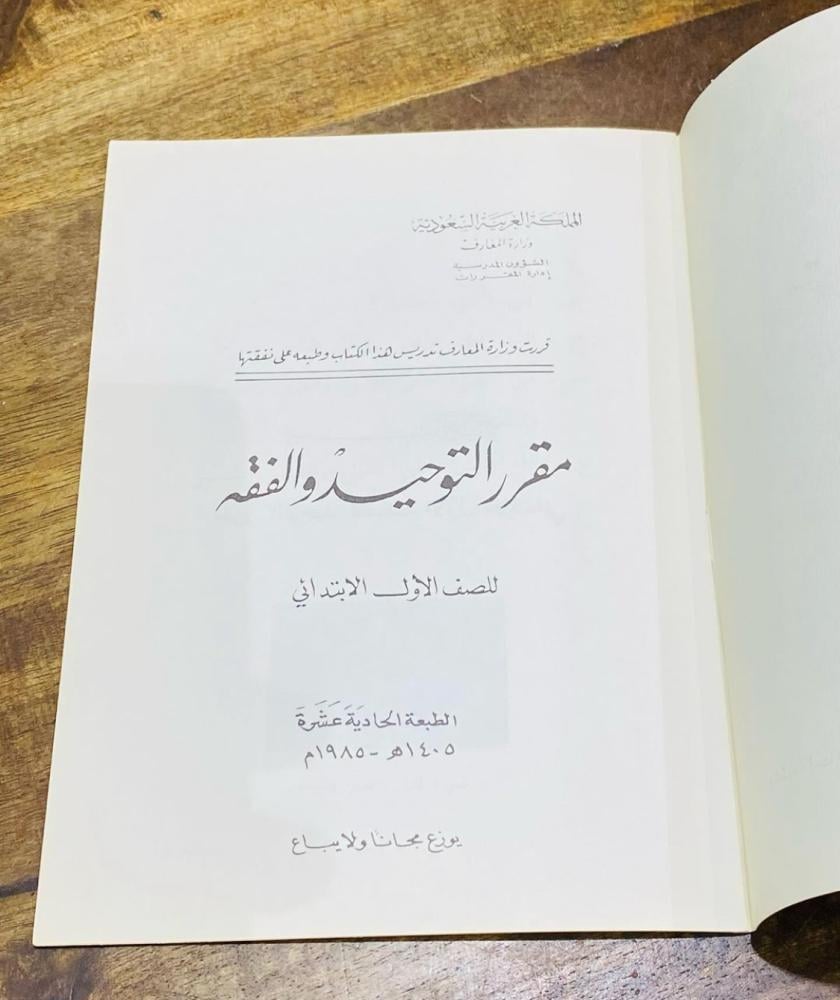 المملكة العربية السعودية
وزارة المعارف
الشؤون المدرسية
إدارة المقررات
قررت وزارة المعارف تدريس هذا الكتاب وطبعه على نفقتها
مقرر التوحيد والفقه
للصف الأول الابتدائي
الطبعة الحاديَةَ عَشَرَةَ
١٤٠٥هـ - ١٩٨٥م
يوزع مجانًا ولا يباع